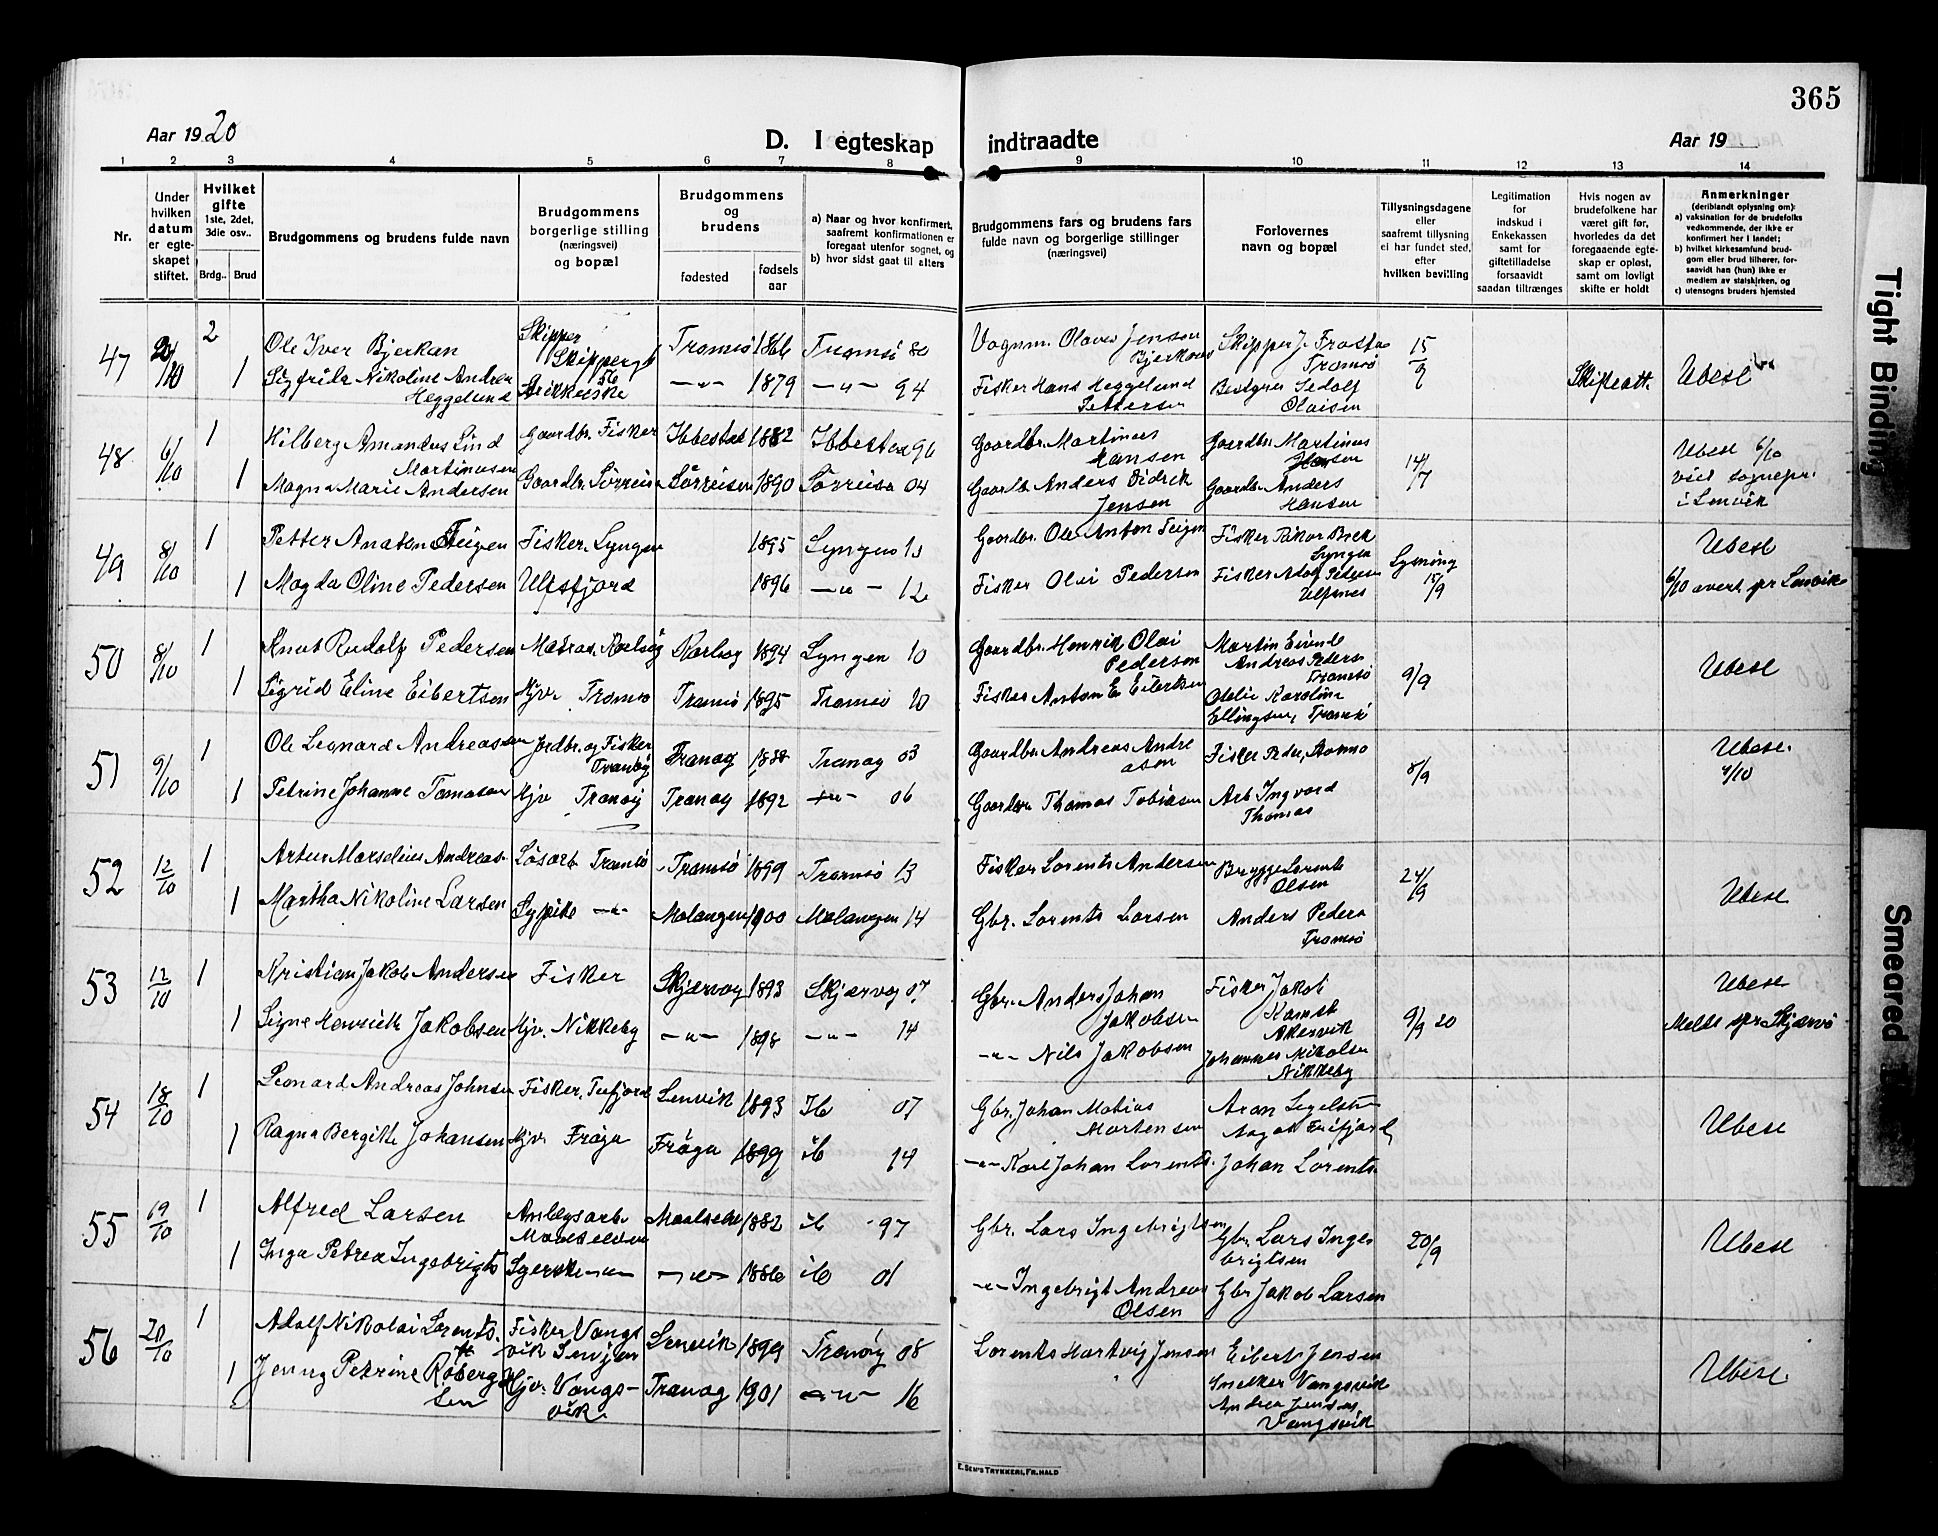 365
Aar 1920
D. I egteskap indtraadte
Aar 19
1 2 3 4 5 6 7 8 9 10 11 12 13 14
Nr.
Under hvilken datum er egteskapet stiftet.
Hvilket gifte
1ste, 2det, 3die osv..
Brdg. Brud
Brudgommens og brudens fulde navn
Brudgommens borgerlige stilling (næringsvei) og bopæl
Brudgommens og brudens
fødested
fødsels aar
a) Naar og hvor konfirmert, saafremt konfirmationen er foregaat utenfor sognet, og
b) hvor sidst gaat til alters
Brudgommens fars og brudens fars fulde navn og borgerlige stillinger (næringsvei)
Forlovernes navn og bopæl
Tillysningsdagene eller saafremt tillysning ei har fundet sted, efter hvilken bevilling
Legitimation for indskud i Enkekassen samt for giftetilladelse forsaavidt saadan tiltrænges
Hvis nogen av brudefolkene har været gift før, hvorledes da det foregaaende egteskap er opløst, samt om lovligt skifte er holdt
Anmerkninger
(deriblandt oplysning om):
a) vaksination for de brudefolks vedkommende, der ikke er konfirmert her i landet;
b) hvilket kirkesamfund brudgom eller brud tilhører, forsaavidt han (hun) ikke er medlem av statskirken, og
c) utensogns bruders hjemsted
47 2 Ole Iver Bjerkan Skipper Skippergt 56 Tromsö 1866 Tromsö 80 Vognm. Olaus Jensen Bjerkan Skipper J. Frosta Tromsö 15/9
1 Sigfride Nikoline Andrea Heggelund 1879 94 Fisker Hans Heggelund Pettersen Sedolf Olaisen Skifteatt. Ubesl
48 6/10 1 Hilberg Amandus Lind Martinusen Gaardbr. Fisker Ibbestad 1882 Ibbestad 96 Gaardbr. Martinus Hansen Gaardbr. Martinus Hansen 14/7 Ubesl 6/10
1 Magna Marie Andersen Gaardbr. Sörreisa Sörreisa 1890 Sörreisa 04 Gaardb. Anders Didrik Jensen Gaardbr. Anders Hansen viet sognepr. i Lenvik
49 8/10 1 Petter Anaton Teigen Fisker, Lyngen 1895 Lyngen Gaardbr. Ole Anton Teigen Fisker Lyngen Lysning 15/9 Ubesl
1 Magda Oline Pedersen Ulfsfjord 1896 12 Fisker Olai Pedersen Fisker Adolf Pedersen Ulfsnes 6/10 avert. spr Lenvik
50 8/10 1 Knut Rudolf Pedersen Karlsöy 1894 Lyngen 10 Gaardbr. Henrik Olai Pedersen Martin Eivind Andreas Peders Tromsö 9/9 Ubesl
1 Sigrid Eline Eibertsen Hjv. Tromsö Tromsö 1895 Tromsö 10 Fisker Anton E Eilertsen Otelie Karoline Ellingsen, Tromsö
51 9/10 1 Ole Leonard Andreassen Jordbr. og Fisker Tranöy Tranöy Tranöy 03 Gaardbr. Andreas Andreasen Fisker Peder 8/9 Ubesl.
1 Petrine Johanne Tomasen Hjv Tranöy Tranöy 1892 06 Gaardbr Thomas Tobiasen Arb Ingvard Thomas
52 12/10 1 Artur Marselius Andreas. Lösarb. Tromsö Tromsö 1899 Tromsö 13 Fisker Lorents Andersen Brygge Lorents Olsen 24/9
1 Martha Nikoline Larsen Malangen 1900 Malangen 14 Gbr. Lorents Larsen Anders Peders Tromsö Ubesl
53 12/10 1 Kristian Jakob Andersen Fisker Skjærvöy 1893 Skjærvöy 07 Gbr. Anders Johan Jakobsen Fisker Jakob Akervik 9/9 20 Ubesl
1 Signe Henriette Jakobsen Hjv. Nikkeby 1898 14 Nils Jakobsen Johannes Nikolsen Nikkeby Meldt spr Skjærvö
54 18/10 1 Leonard Andreas Johnsen Fisker, Lenvik 1893 Ib 07 Gbr. Johan Mobias Mortensen Ubesl
1 Ragna Bergitte Johansen Hjv. Fröya Fröya 1899 ib 14 Karl Johan Lorents. Johan Lorents
55 19/10 1 Alfred Larsen Anlegsarb. Maalselven 1882 ib 97 Gbr. Lars Ingebrigtsen Gbr. Lars Ingebrigtsen 20/9 Ubesl
1 Inga Petrea Ingebrigts 1886 ib 01 Ingebrigt Andreas Olsen Gbr Jakob Larsen
56 20/10 1 Adolf Nikolai Lorents. Fisker Vangsvik Senjen Lenvik 1899 Tranöy 08 Lorents Hartvig Jensen Eibert Jensen Ubesl
1 Jenny Petrine Robergsen Hjv. Vangsvik Tranöy 1901 16 Snekker Vangsvik Andrea Jensen Vangsvik
E. Sem's Trykkeri, Fr.hald
Tight Binding
Smeared